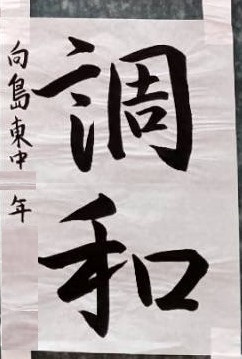 調和
向島東中 年